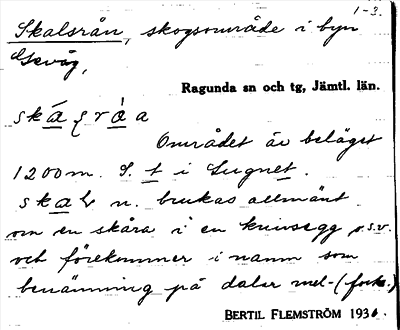 1-3.
Skalsrån, skogsområde i byn
Gevåg,
Ragunda sn och tg, Jämtl. län.
Området är beläget
1200 m. S. t i Lugnet.
skaɫ n. brukas allmänt
om en skåra i en knivsegg o.s.v.
och förekommer i namn som
benämning på dalar mel- (forts.)
BERTIL FLEMSTRÖM 1936.